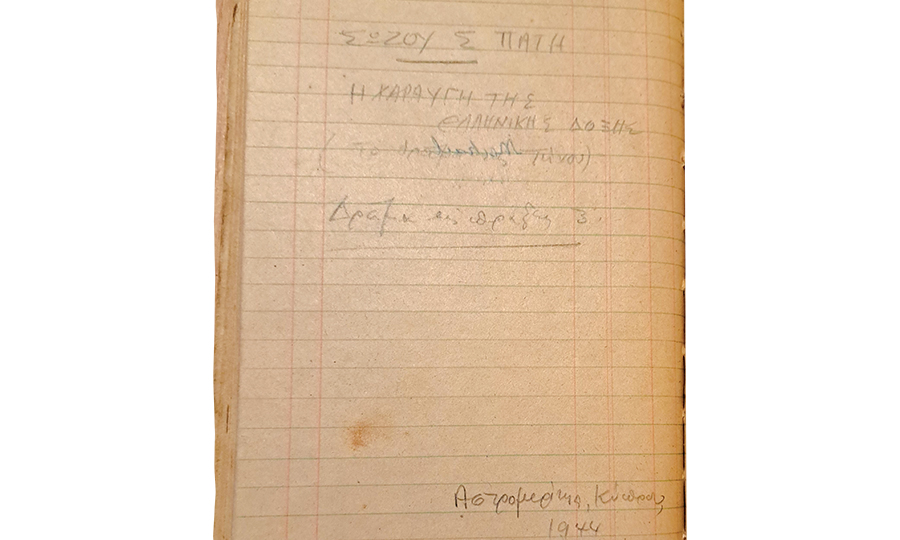 ΣΩΖΟΥ Σ ΠΑΤΗ
Η ΧΑΡΑΥΓΗ ΤΗΣ
ΕΛΛΗΝΙΚΗΣ ΔΟΞΗΣ
(Το Τήνου)
Δράμα εις πράξεις 3.
Αστρομερίτης, Κύπρος,
1944